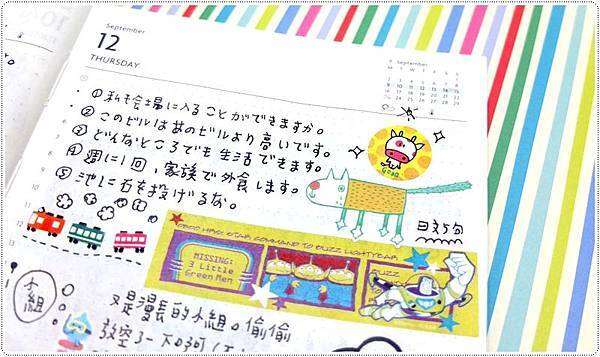 September
12
THURSDAY
September
①私も会場に入ることができますか。
②このビルはあのビルより高いです。
③どんなところでも生活できます。
④週に1回,家族で外食します。
⑤池に石を投げるな。
日文5句
STAR COMMAND TO BUZZ LIGHTYEAR
MISSING:
3 Little
Green Men
BUZZ
小組
又是漫長的小組。偷偷
放空了一下